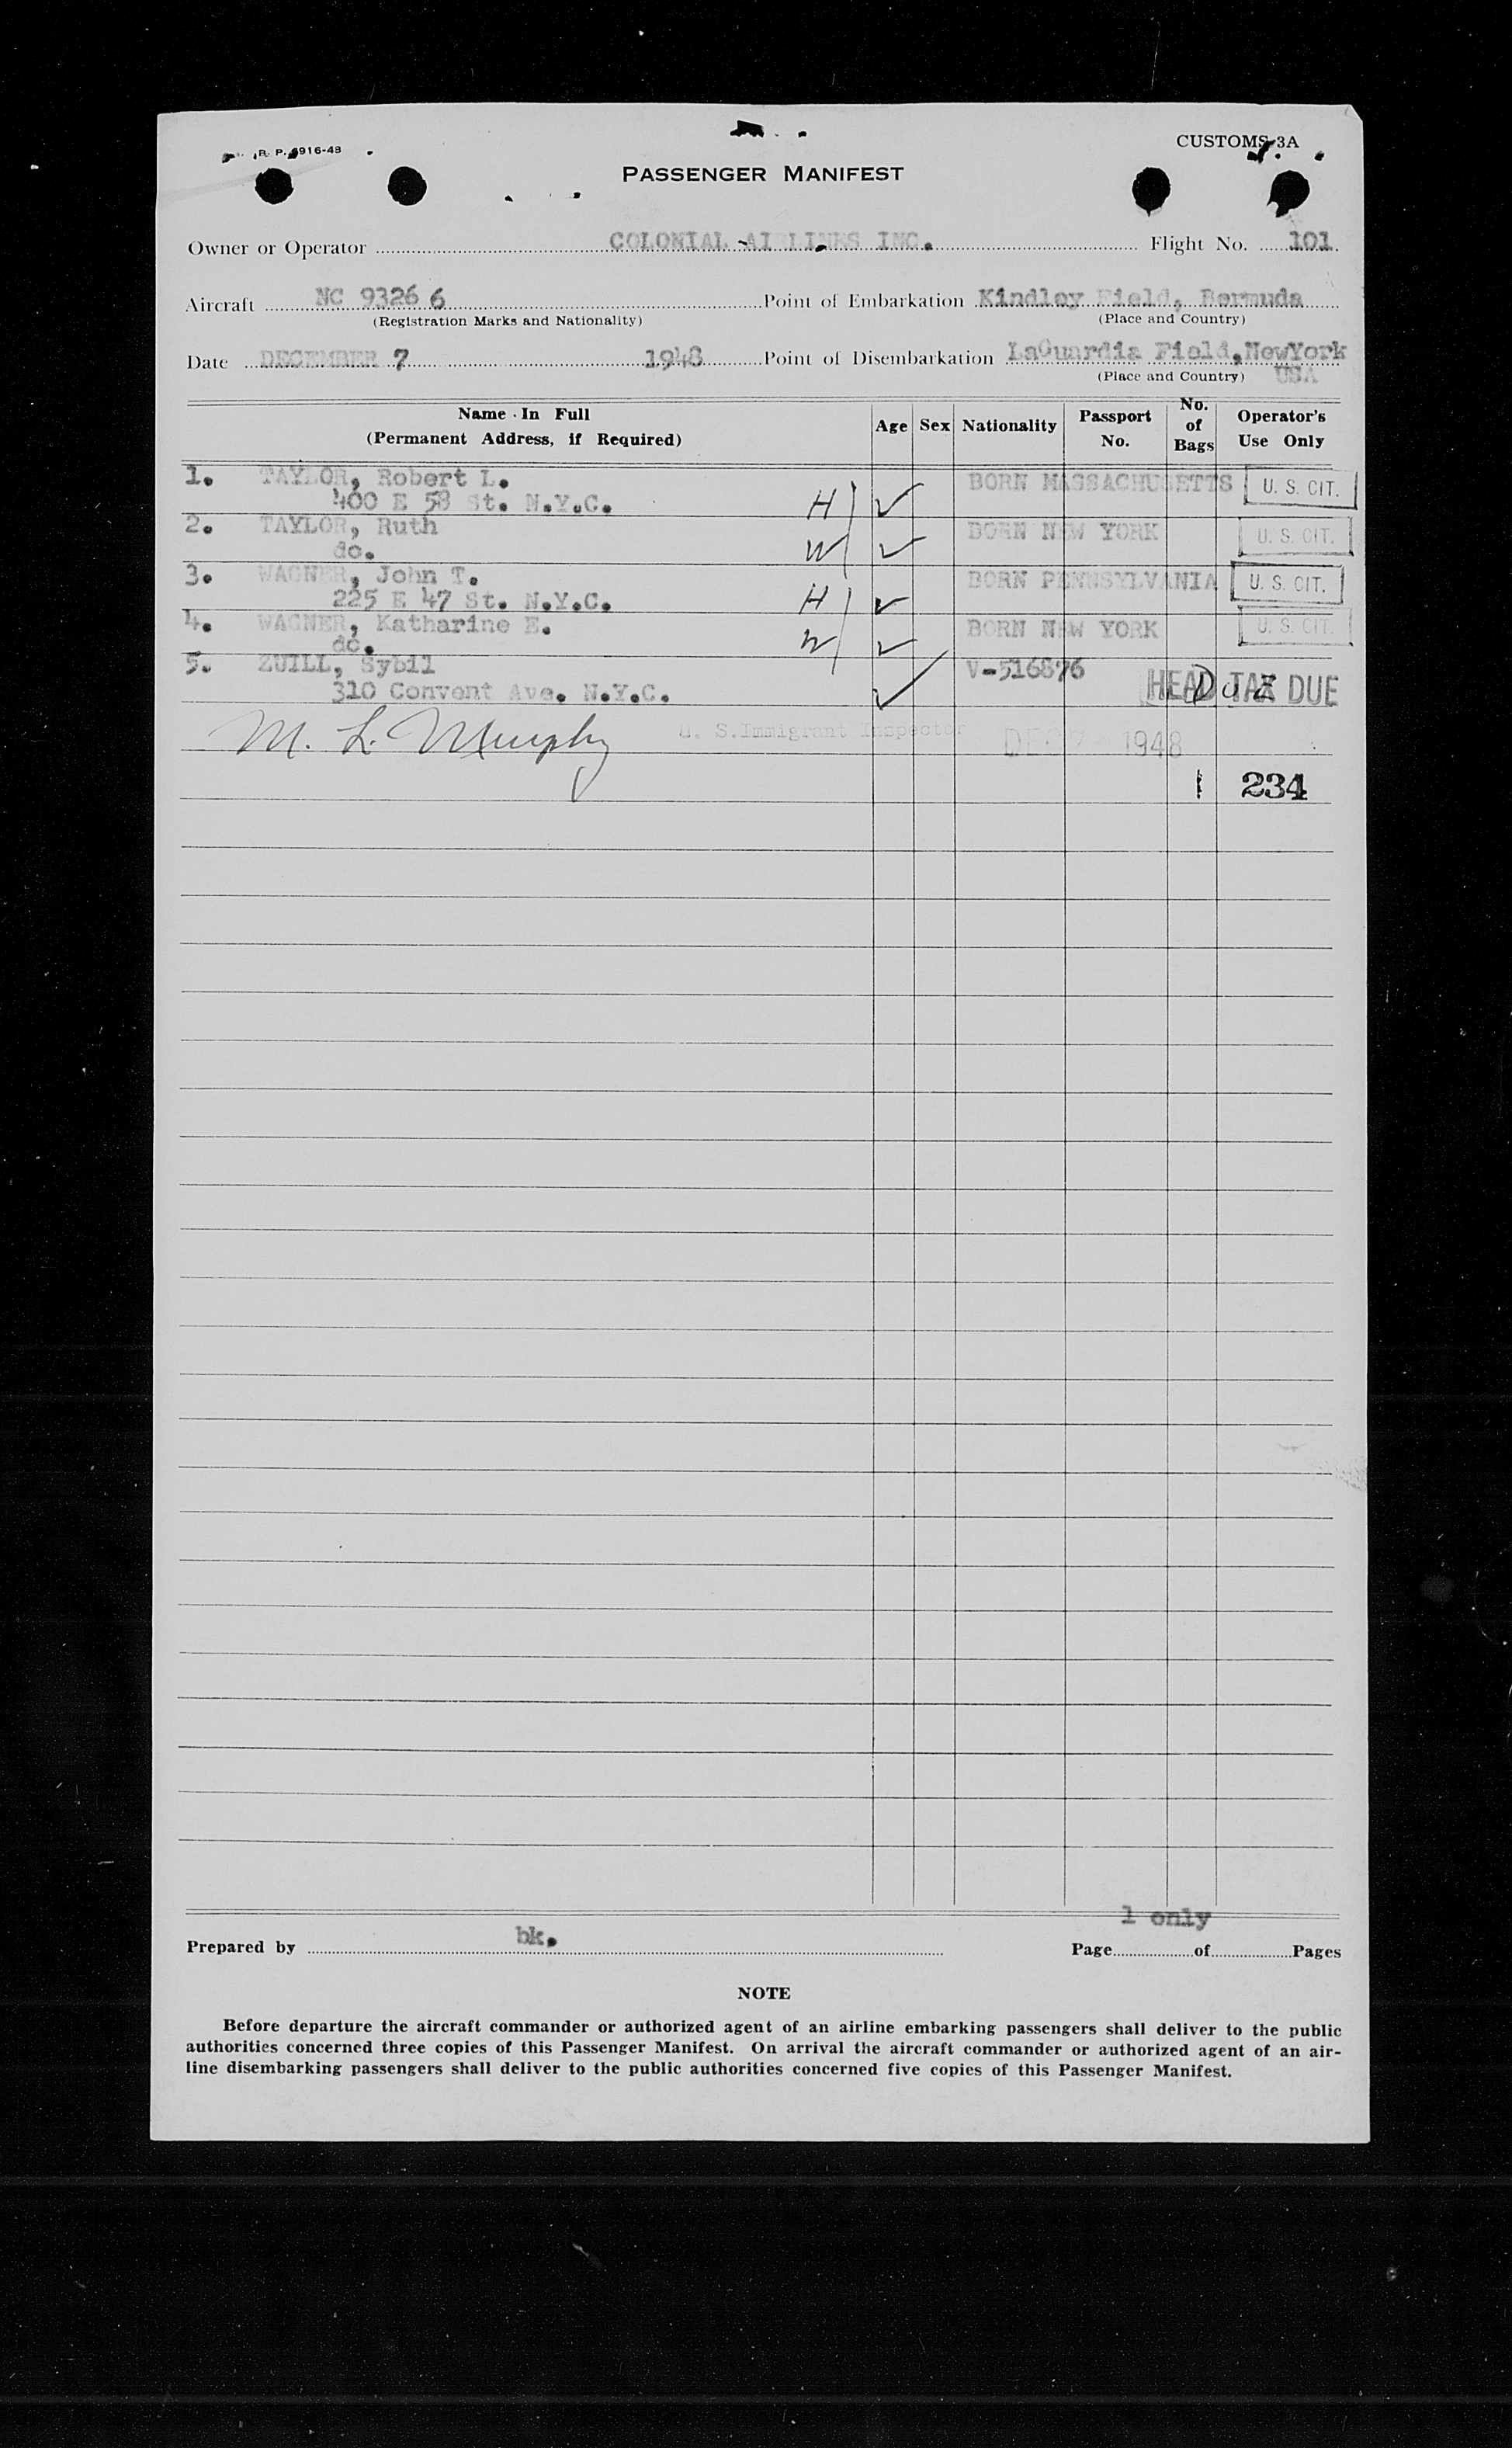 R. P. 6916-48
CUSTOMS 3A
PASSENGER MANIFEST
Owner or Operator COLONIAL AIRLINES INC. Flight No. 101
Aircraft NC 93266 Point of Embarkation Kindley Field, Bermuda
(Registration Marks and Nationality) (Place and Country)
Date DECEMBER 7 1948 Point of Disembarkation LaGuardia Field, NewYork
(Place and Country) USA
Name In Full (Permanent Address, if Required) Age Sex Nationality Passport No. No. of Bags Operator's Use Only
1. TAYLOR, Robert L. BORN MASSACHUSETTS U. S. CIT.
400 E 58 St. N.Y.C. H ✓
2. TAYLOR, Ruth BORN NEW YORK U. S. CIT.
do. W ✓
3. WAGNER, John T. BORN PENNSYLVANIA U. S. CIT.
225 E 47 St. N.Y.C. H ✓
4. WAGNER, Katharine E. BORN NEW YORK U. S. CIT.
do. W ✓
5. ZUILL, Sybil V-516876 HEAD TAX DUE
310 Convent Ave. N.Y.C. ✓
M. L. Murphy U. S. Immigrant Inspector DEC 7 1948
1 234
1 only
Prepared by bk. Page of Pages
NOTE
Before departure the aircraft commander or authorized agent of an airline embarking passengers shall deliver to the public
authorities concerned three copies of this Passenger Manifest. On arrival the aircraft commander or authorized agent of an air-
line disembarking passengers shall deliver to the public authorities concerned five copies of this Passenger Manifest.